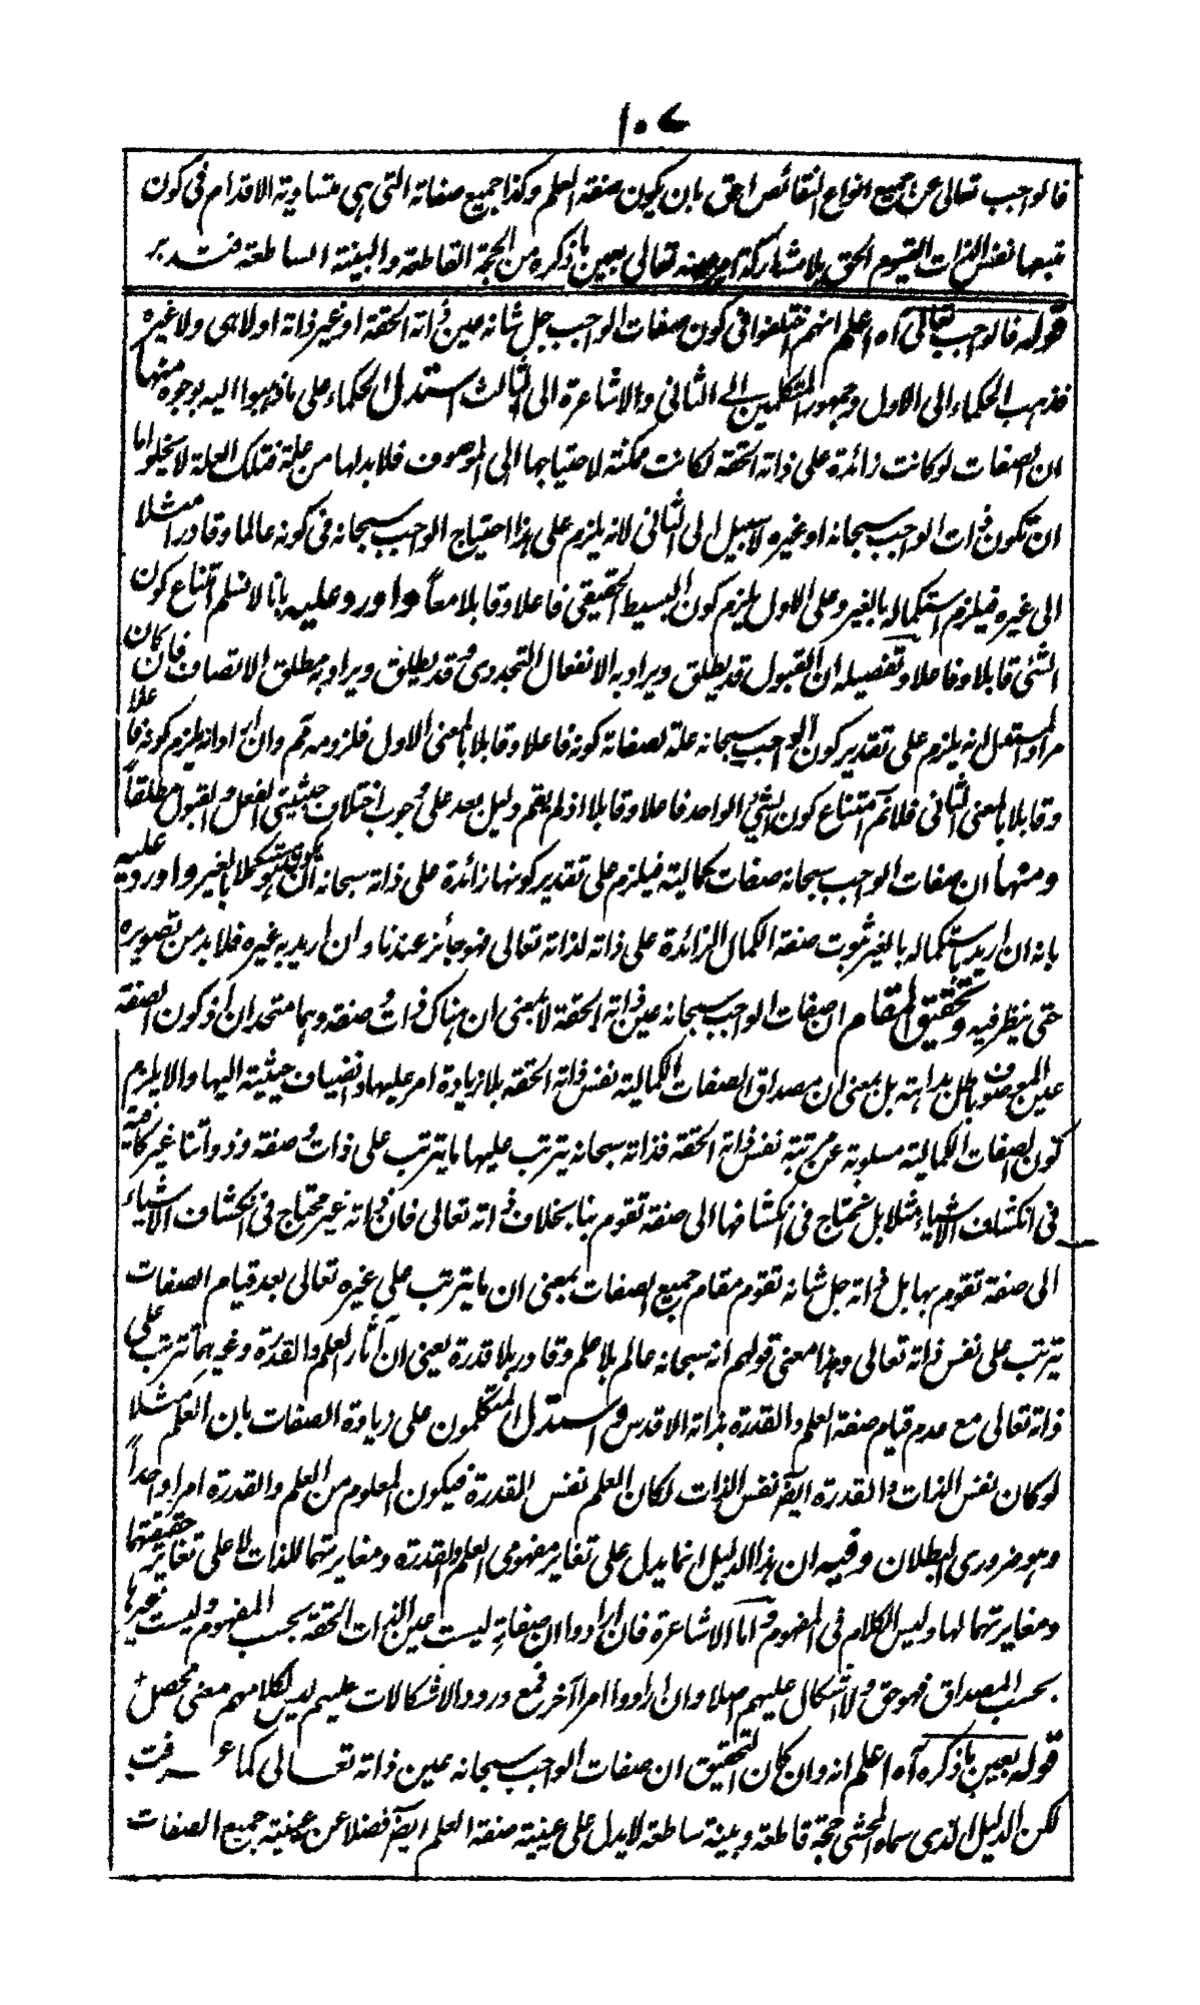 ١٠٧
فالواجب تعالى عن جميع انواع النقائص احق بان يكون صفة العلم وكذا جميع صفاته التي هي متساوية الاقدام في كون
تبعها نفس الذات القيوم الحق بلا مشاركة امر منه تعالى بعين ما ذكره من الحجة القاطعة والبينة الساطعة فتدبر
قوله فالواجب تعالى آه اعلم انهم اختلفوا في كون صفات الواجب جل شانه عين ذاته الحقة او غير ذاته او لا هي ولا غيره
فذهب الحكماء الى الاول وجمهور المتكلمين الى الثاني والاشاعرة الى الثالث استدل الحكماء على ما ذهبوا اليه بوجوه منها
ان الصفات لو كانت زائدة على ذاته الحقة لكانت ممكنة لاحتياجها الى الموصوف فلا بد لها من علة فتلك العلة لا يخلو اما
ان تكون ذات الواجب سبحانه او غيره لا سبيل الى الثاني لانه يلزم على هذا احتياج الواجب سبحانه في كونه عالما وقادرا مثلا
الى غيره فيلزم استكماله بالغير وعلى الاول يلزم كون البسيط الحقيقي فاعلا وقابلا معاً واورد عليه بانا لا نسلم امتناع كون
الشئ قابلا وفاعلا وتفصيله ان القبول قد يطلق ويراد به الانفعال التجددى وقد يطلق ويراد به مطلق الاتصاف فان كان
مراد المستدل انه يلزم على تقدير كون الواجب سبحانه علة لصفاته كونه فاعلا وقابلا بالمعنى الاول فلزومه مم وان اراد انه يلزم كونه فاعلا
وقابلا بالمعنى الثاني فلانم امتناع كون الشئ الواحد فاعلا وقابلا اذ لم يقم دليل بعد على وجوب اختلاف حيثيتى الفعل والقبول مطلقاً
ومنها ان صفات الواجب سبحانه صفات كمالية فيلزم على تقدير كونها زائدة على ذاته سبحانه ان يكون هو مستكملا بالغير واورد عليه
بانه ان اريد باستكماله بالغير ثبوت صفة الكمال الزائدة على ذاته لذاته تعالى فهو جائز عندنا وان اريد به غيره فلا بد من تصويره
حتى ينظر فيه وتحقيق المقام ان صفات الواجب سبحانه عين ذاته الحقة لا بمعنى ان هناك ذات وصفة وهما متحدان اذ كون الصفة
عين الموصوف باطل بداهة بل بمعنى ان مصداق الصفات الكمالية نفس ذاته الحقة بلا زيادة امر عليها وانضياف حيثية اليها والا يلزم
كون الصفات الكمالية مسلوبة عن مرتبة نفس ذاته الحقة فذاته سبحانه يترتب عليها ما يترتب على ذات وصفة وذواتنا غير كافية
في انكشاف الاشياء مثلا بل نحتاج في انكشافها الى صفة تقوم بنا بخلاف ذاته تعالى فان ذاته غير محتاج في انكشاف الاشياء
الى صفة تقوم بها بل ذاته جل شانه تقوم مقام جميع الصفات بمعنى ان ما يترتب على غيره تعالى بعد قيام الصفات
يترتب على نفس ذاته تعالى وهذا معنى قولهم انه سبحانه عالم بلا علم وقادر بلا قدرة يعنى ان آثار العلم والقدرة وغيرهما تترتب على
ذاته تعالى مع عدم قيام صفة العلم والقدرة بذاته الاقدس واستدل المتكلمون على زيادة الصفات بان العلم مثلا
لو كان نفس الذات والقدرة ايضا نفس الذات لكان العلم نفس القدرة فيكون المعلوم من العلم والقدرة امرا واحداً
وهو ضرورى البطلان وفيه ان هذا الدليل انما يدل على تغاير مفهومى العلم والقدرة ومغايرتهما للذات لا على تغاير حقيقتهما
ومغايرتهما لها وليس الكلام في المفهوم واما الاشاعرة فان ارادوا ان صفاته ليست عين الذات الحقة بحسب المفهوم وليست غيرها
بحسب المصداق فهو حق ولا اشكال عليهم اصلا وان ارادوا امرا آخر فمع ورود الاشكالات عليهم ليس لكلامهم معنى محصل +
قوله بعين ما ذكره آه اعلم انه وان كان التحقيق ان صفات الواجب سبحانه عين ذاته تعالى كما عرفت
لكن الدليل الذى سماه المحشى حجة قاطعة وبينة ساطعة لا يدل على عينية صفة العلم ايضا فضلا عن عينية جميع الصفات